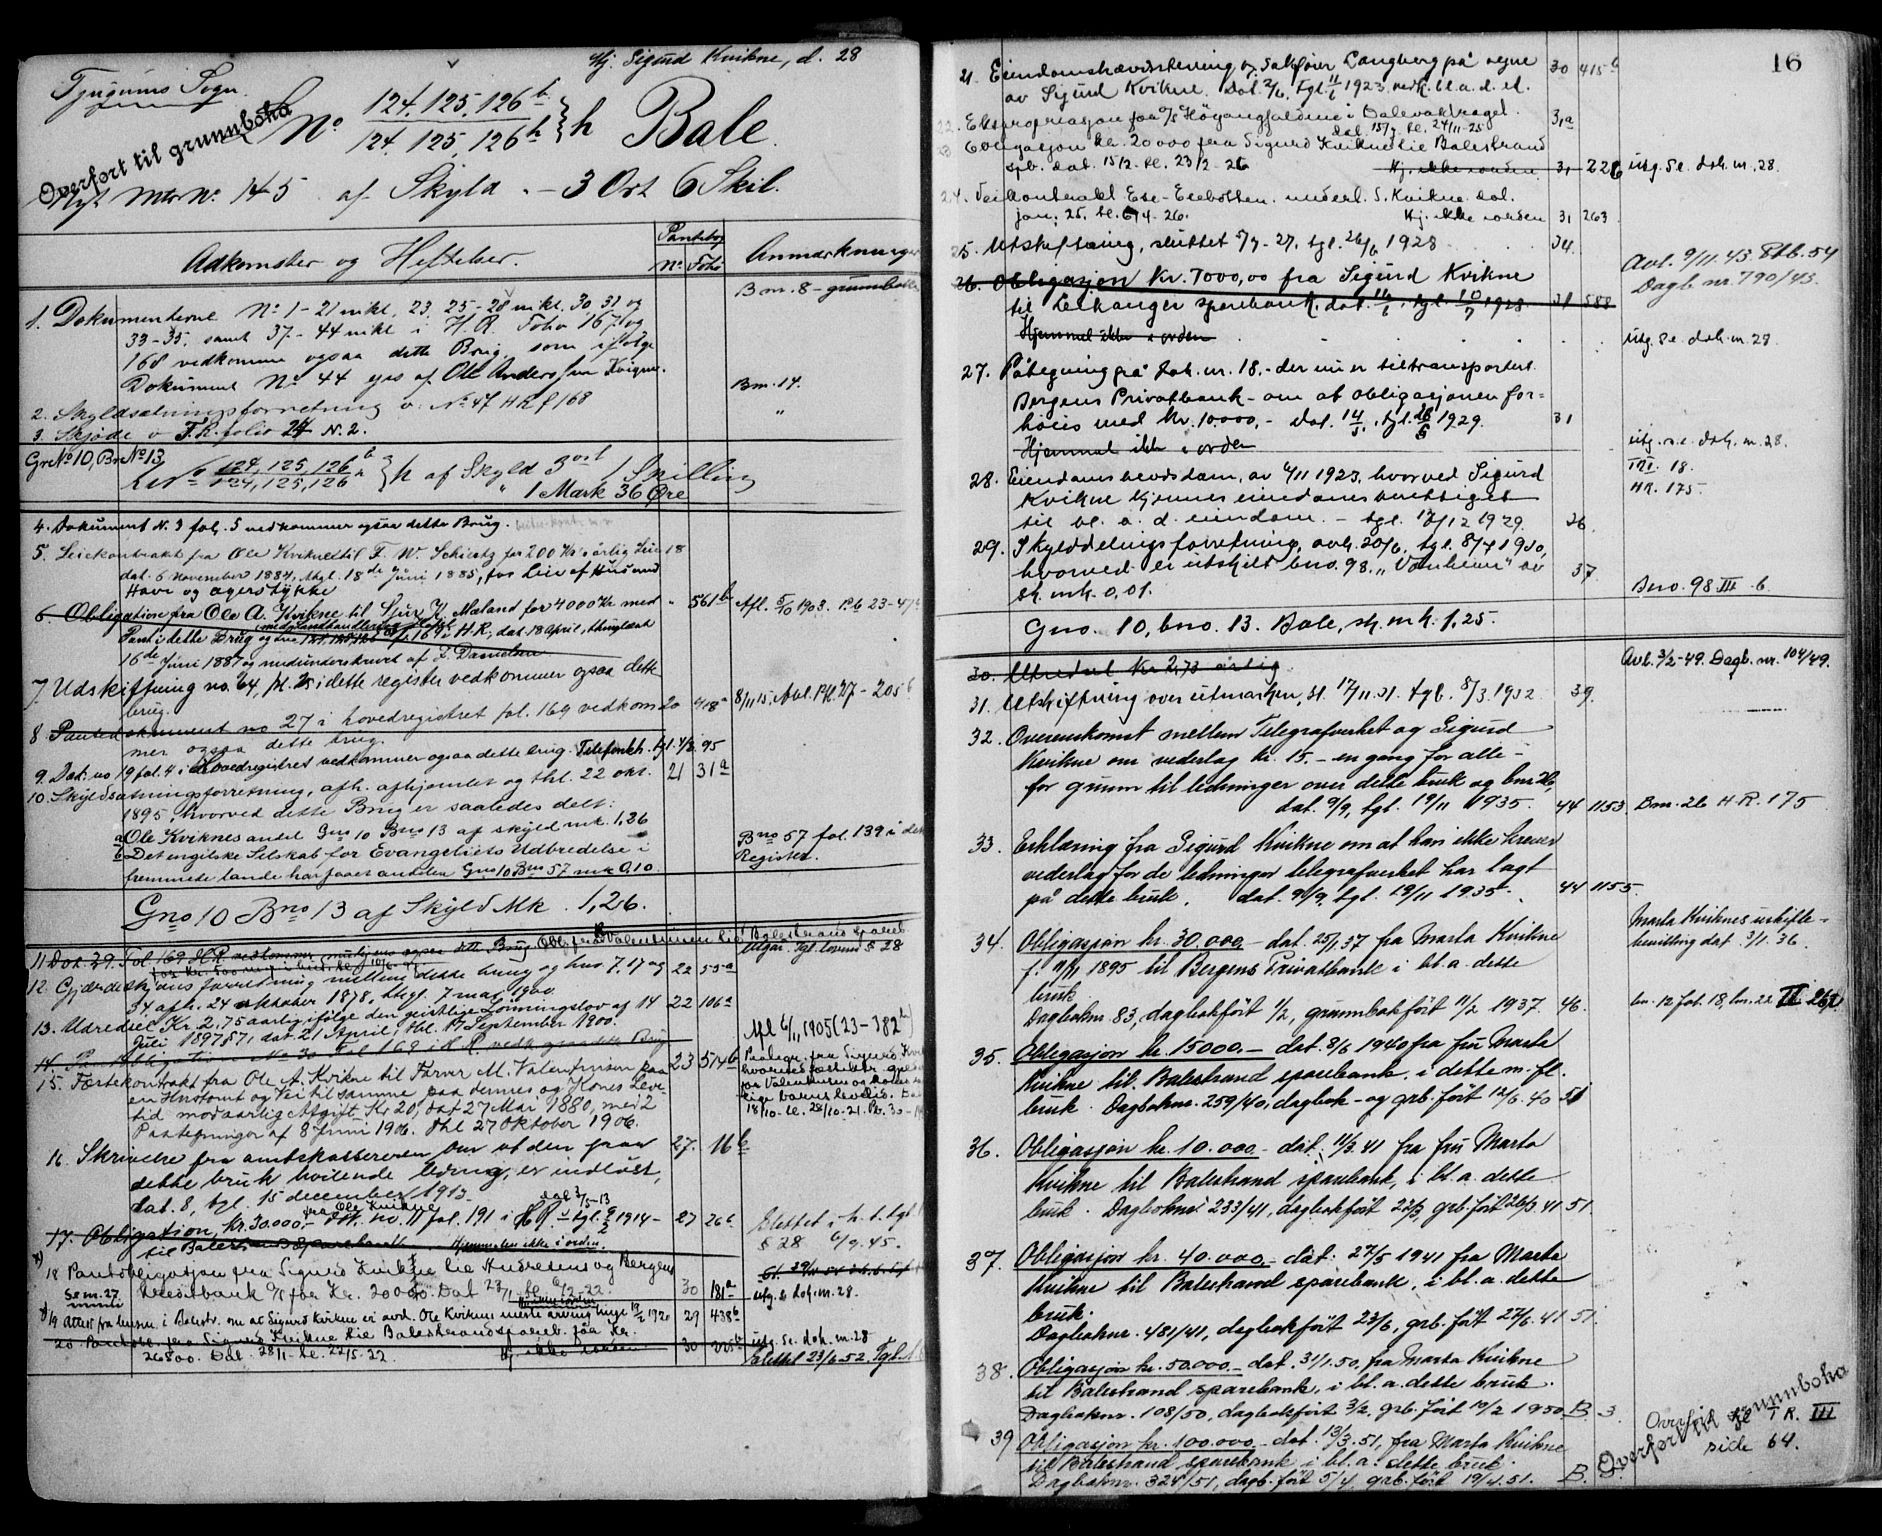 Hj. Sigurd Kvikne, d. 28
Tjugums Sogn.
Overført til grunnboka
No 124.125.126 b / 124.125.126 h } h Bale.
Nyt Mtr No 145 af Skyld. – 3 Ort 6 Skil.
Adkomster og Heftelser.
Pantebog
No Folio
Anmærkninger
Bm. 8 – grunnboken
1. Dokumenterne No 1-21 inkl. 23, 25-28 inkl. 30 31 og
33-35, samt 37-44 inkl i H.R. Folio 167 og
168 vedkomme ogsaa dette Brug, som ifølge
Dokument No 44 eies af Ole Anderssen Kvigne.
Bm. 14.
2. Skyldsætningsforretning v. No 47 H R f 168 "
3. Skjøde v T.R. folio 24 N. 2.
Gr No 10, Br No 13,
LNo 124, 125, 126 b / 124, 125, 126 h } h af Skyld 3 ort 1 Skilling
" 1 Mark 36 Øre
4. Dokument N. 3 fol. 5 vedkommer ogsaa dette Brug.
5. Leiekontrakt fra Ole Kvikne til F. W. Schiertz for 200 Kr i årlig Leie 18
dat. 6 November 1884, thgl. 18de Juni 1885, for Leie af Huse med
Have og agerstykke
6. Obligation fra Ole A. Kvikne til Sjur J. Mæland for 4000 Kr med " 561 b Afl. 5/10 1903. Pb 23-47
Pant i dette Brug og fol 169 i H.R., dat. 18 April, thinglæst
16de Juni 1887 og medunderskrevet af J. Danielsen
7. Udskiftning no. 64, fol. 25 i dette register vedkommer ogsaa dette
brug.
20 418 a 8/11 15. Avl. Pb. 27 – 205 b
8. Pantedokument no 27 i hovedregistret fol. 169 vedkom
mer ogsaa dette brug.
9. Dok. no 19 fol. 4 i Hovedregistret vedkommer ogsaa dette brug. Telefonkh. tgl. 4/3. 95
10. Skyldsætningsforretning, afh. afhjemlet og thl. 22 okt. 21 31 a
1895, hvorved dette Brug er saaledes delt:
a Ole Kviknes andel Gno 10 Bno 13 af skyld mk. 1,26
b Det engelske Selskab for Evangeliets Udbredelse i
fremmede lande har faaet andelen Gno 10 Bno 57 mk 0,10.
Bno 57 fol 139 i dette
Register.
Gno 10 Bno 13 af Skyld Mk. 1,26.
11 Dok. 39. Fol 169 H.R. vedkommer muligens ogsaa dette Brug Obl. fra Valentinsen til Balestrands Spareb
Utgår. Tgl. loven § 28
12. Gjerdeskjønsforretning mellem dette brug og bno. 7, 17 og 22 55 a
34 afh. 24 oktober 1878, thgl. 7 mai 1900.
13. Udredsel Kr. 2,75 aarlig ifølge den geistlige Lønningslov af 14 22 106 a
Juli 1897 § 7, dat 21 April, thl. 17 September 1900.
14. Pantobligation No 30 Fol 169 i H.R. vedk. ogsaa dette Brug 23 514 b Afl 6/1 1905 (23-382 b)
15. Fæstekontrakt fra Ole A. Kvikne til Farver M. Valentinsen paa
en Hustomt og Vei til samme paa dennes og Kones Leve-
tid mod aarlig Afgift Kr 20, dat 27 Mai 1880, med 2
Paategninger af 8 Juni 1906. thl 27 Oktober 1906.
Paategn. fra Sigurd Kvikne
hvorved fæstektr. gjelder
for Valentinsen og kones
barns levetid.
18/10 - tl. 28/10 - 21. Pb. 30 –
16. Skrivelse fra amtskassereren om at den paa 27. 16 b
dette bruk hvilende leding, er indløst,
dat. 8, tgl. 15 december 1913.
17. Obligation, kr. 30000,- fra Ole Kvikne dok. no. 11 fol. 191 i H.R. dat 3/5-13 tgl. 9/2 1914 – 27 26 b
til Balestrand Sparebank Hjemmelen ikke i orden.
Slettet i h. t. tgl
§ 28 6/9. 45.
18 Pantobligasjon fra Sigurd Kvikne til Andresens og Bergens
Kreditbank A/S for Kr. 20000. Dat 23/1 – tl. 6/12-22. 30 181 a
Se m. 27.
utg. se dok. m. 28.
19 Attest fra lensm. i Balestr. om at Sigurd Kvikne er avd. Ole Kviknes eneste arving tinge 19/2 1920 29 438 b
20 Pantobl. fra Sigurd Kvikne til Balestrand spareb. for kr. 30 225 b utg. se. dok. m. 28
26800. Dat. 28/11 - tl. 22/5-22. Hj. ikke i orden Slettet 23/6 52. Tgl.
16
21. Eiendomshævderklering ved Sakfører Langberg på vegne 30 415 b
av Sigurd Kvikne. Dat. 2/6, tgl. 11/6 1923 vedk. bl. a. d. et.
22. Ekspropriasjon for A/S Høyangfaldene i Dalevakdraget. 31 a
dat. 15/7. tl. 24/11-25
23 Obligasjon kr. 20000 fra Sigurd Kvikne til Balestrand
spb. dat. 15/2. tl. 23/2-26 Hj. ikke i orden 31 226 utg. Se. dok. m. 28.
24. Veikontrakt Ese-Esebotten. underl. S. Kvikne dat.
jan. 25. tl. 6/4-26. Hj. ikke i orden 31 263
25. Utskiftning, sluttet 5/7-27, tgl. 26/6 1928 34.
26. Obligasjon kr. 7000,00 fra Sigurd Kvikne
til Leikanger sparebank, dat. tgl. 10/7 1928. 31 588
Hjemmel ikke i orden
Avl. 9/11.43 Ptb. 54
Dagb. nr. 790/43.
utg. se. dok. m. 28.
27. Påtegning på dok. nr. 18. – der nu er tiltransportert
Bergens Privatbank – om at obligasjonen for=
høies med kr. 10.000,- dat. 14/5, tgl. 28/5 1929. 31
Hjemmel ikke i orden
utg. s. e. dok. m. 28.
28. Eiendomsbevdsdom, av 6/11 1923, hvorved Sigurd
Kvikne kjennes eiendomsberettiget
til bl. a. d. eiendom. – tgl. 12/12 1929. 26.
III. 18.
HR. 175.
29. Skylddelingsforretning, avh. 20/6, tgl. 8/7 1930,
hvorved er utskilt bno. 98. „Vonheim" av 37.
sk. mk. 0,01.
Bno. 98 III - 6.
Gno. 10, bno. 13. Bale, sk. mk. 1,25.
30. Utredsel Kr 2,73 årlig Avl. 3/2-49. Dagb. nr. 104/49.
31. Utskiftning over utmarken, sl. 17/11.31. tgl. 8/3 1932. 39.
32. Overenskomst mellem Telegrafverket og Sigurd
Kvikne om vederlag kr. 15.– en gang for alle –
for grunn til ledninger over dette bruk og bnr 26,
dat. 9/9, tgl. 19/11 1935. 44 1153. Bm. 26 H.R. 175
33. Erklæring fra Sigurd Kvikne om at han ikke krever
vederlag for de ledninger telegrafverket har lagt
på dette bruk, dat. 9/9, tgl. 19/11 1935. 44 1155.
34. Obligasjon kr. 30.000.– dat. 25/1.37 fra Marta Kvikne
f. 11/11 1895 til Bergens Privatbank i bl. a. dette
bruk.
Dagboknr 83, dagbokført 1/2, grunnbokført 11/2 1937. 46.
Marta Kviknes uskifte-
bevilling dat. 3/1.36.
bn. 12 fol. 18, bn. 22
35. Obligasjon kr. 15000.– dat. 8/6 1940 fra fru Marta
Kvikne til Balestrand sparebank, i dette m. fl.
bruk. Dagboknr. 259/40, dagbok- og grb. ført 12/6.40 51
36. Obligasjon kr. 10.000.– dat. 11/3.41 fra fru Marta
Kvikne til Balestrand sparebank, i bl. a. dette
bruk. Dagboknr 233/41, dagbokført 22/3, grb. ført 26/3 41 51.
37. Obligasjon kr. 40.000.– dat. 27/5 1941 fra Marta
Kvikne til Balestrand sparebank, i bl. a. dette
bruk.
Dagboknr. 481/41, dagbokført 23/6, grb. ført 27/6. 41 51.
38. Obligasjon kr. 50.000.– dat. 31/1.50, fra Marta Kvikne
til Balestrand sparebank, i bl. a. dette bruk.
Dagboknr. 108/50, dagbokført 3/2, grb. ført 10/2 1950 B. 3.
39 Obligasjon kr. 100.000.– dat. 13/3.51, fra Marta Kvikne
til Balestrand sparebank i bl. a. dette bruk.
Dagboknr. 324/51, dagb. ført 5/4 grb. ført 19/4.51. B.
Overført til grunnboka
Overført til T R. III
side 64.